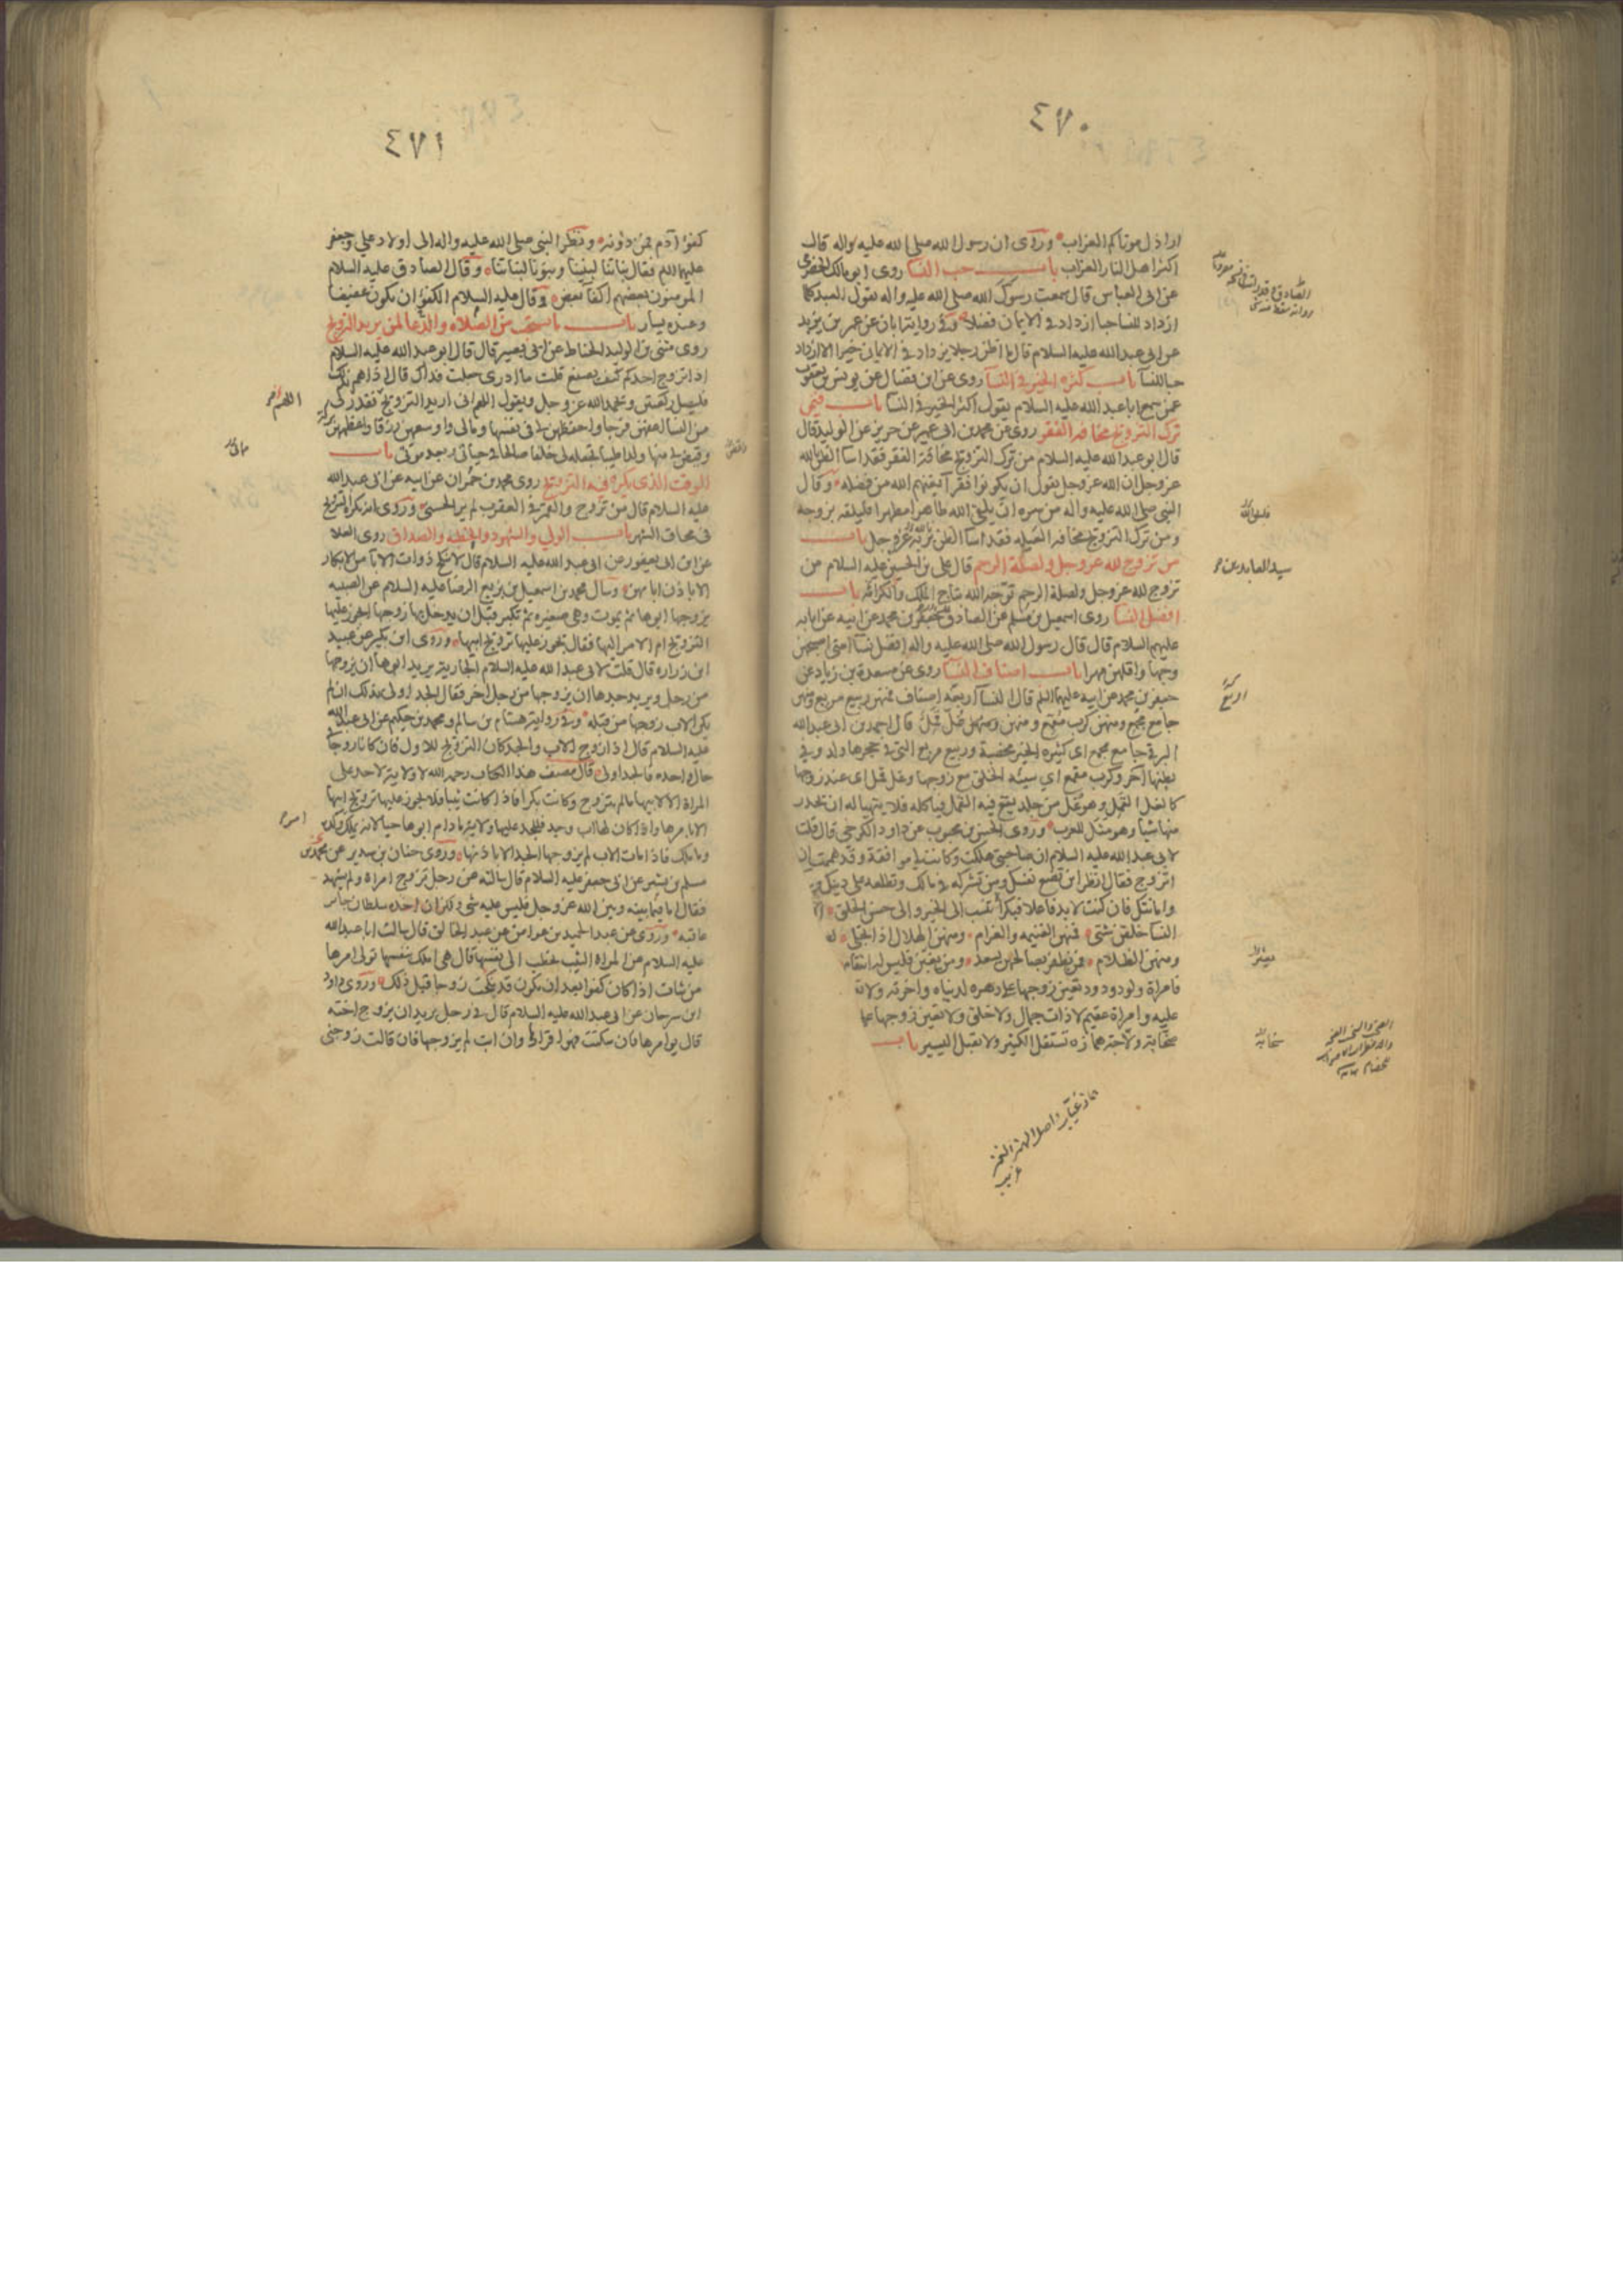 ٤٧٠
اراذل موتاكم العزاب وروى ان رسول الله صلى الله عليه واله قال
اكثر اهل النار العزاب باب حب النسا روى ابو مالك الحضرمى
عن ابى العباس قال سمعت رسول الله صلى الله عليه واله يقول العبد كلما
ازداد للنسا حبا ازداد فى الايمان فضلا وفى رواية ابان عن عمر بن يزيد
عن ابى عبد الله عليه السلام قال ما اظن رجلا يزداد فى الايمان خيرا الا ازداد
حبا للنسآ باب كثرة الخير فى النسآ روى عن ابن فضال عن يونس بن يعقوب
عمن سمع ابا عبد الله عليه السلام يقول اكثر الخير فى النسا باب فيمن
ترك التزويج مخافة الفقر روى عن محمد بن ابى عمير عن حريز عن الوليد قال
قال ابو عبد الله عليه السلام من ترك التزويج مخافة الفقر فقد اسا الظن بالله
عز وجل ان الله عز وجل يقول ان يكونوا فقرآ يغنهم الله من فضله وقال
النبى صلى الله عليه واله من سره ان يلقى الله طاهرا مطهرا فليلقه بزوجة
ومن ترك التزويج مخافة العيلة فقد اسا الظن بربه عز وجل باب
من تزوج لله عز وجل ولصلة الرحم قال على بن الحسين عليه السلام من
تزوج لله عز وجل ولصلة الرحم توجه الله بتاج الملك والكرامة باب
افضل النسا روى اسمعيل بن مسلم عن الصادق جعفر بن محمد عن ابيه عن ابايه
عليهم السلام قال قال رسول الله صلى الله عليه واله افضل نسآ امتى اصبحهن
وجها واقلهن مهرا باب اصناف النسا روى عن مسعدة بن زياد عن
جعفر بن محمد عن ابيه عليهما السلم قال النسآ اربعة اصناف فمنهن ربيع مربع ومنهن
جامع مجمع ومنهن كرب مقمع ومنهن غل قمل قال احمد بن ابى عبد الله
البرقى جامع مجمع اى كثيرة الخير مخصبة وربيع مربع التى فى حجرها ولد وفى
بطنها اخر وكرب مقمع اى سيئة الخلق مع زوجها وغل قمل اى عند زوجها
كالغل القمل وهو غل من جلد يقع فيه القمل فياكله فلا يتهيا له ان يحذر
منها شيا وهو مثل للعرب وروى الحسن بن محبوب عن داود الكرخى قال قلت
لابى عبد الله عليه السلام ان صاحبتى هلكت وكانت لى موافقة وقد هممت ان
اتزوج فقال انظر اين تضع نفسك ومن تشركه فى مالك وتطلعه على دينك
وامانتك فان كنت لابد فاعلا فبكرا تنسب الى الخير والى حسن الخلق
النسا خلقن شتى فمنهن الغنيمة والغرام ومنهن الهلال اذا تجلى
ومنهن الظلام فمن يظفر بصالحهن يسعد ومن يغبن فليس له انتقام
فامراة ولود ودود تعين زوجها على دهره لدنياه واخرته ولا
عليه وامراة عقيم لا ذات جمال ولا خلق ولا تعين زوجها على
صخابة ولاجة همازة تستقل الكثير ولا تقبل اليسير باب
فليلق الله
سيد العابدين
اربع
صخابة
٤٧١
كفؤا آدم فمن دونه ونظر النبى صلى الله عليه واله الى اولاد على وجعفر
عليهما السلم فقال بناتنا لبنينا وبنونا لبناتنا وقال الصادق عليه السلام
المومنون بعضهم اكفآ بعض وقال عليه السلام الكفؤ ان يكون عفيفا
وعنده يسار باب ما يستحب من الصلاة والدعا لمن يريد التزويج
روى مثنى بن الوليد الحناط عن ابى بصير قال قال ابو عبد الله عليه السلام
اذا تزوج احدكم كيف يصنع قلت ما ادرى جعلت فداك قال اذا هم بذلك
فليصل ركعتين ويحمد الله عز وجل ويقول اللهم انى اريد التزويج فقدر لى
من النسا اعفهن فرجا واحفظهن لى فى نفسها ومالى واوسعهن رزقا واعظمهن بركة
وقيض لى منها ولدا طيبا تجعله لى خلفا صالحا فى حياتى وبعد موتى باب
الوقت الذى يكره فيه التزويج روى محمد بن حمران عن ابيه عن ابى عبد الله
عليه السلام قال من تزوج والقمر فى العقرب لم ير الحسنى وروى انه يكره التزويج
فى محاق الشهر باب الولى والشهود والخطبة والصداق روى العلا
عن ابن ابى يعفور عن ابى عبد الله عليه السلام قال لا تنكح ذوات الابآ من الابكار
الا باذن ابايهن وسال محمد بن اسمعيل بن بزيع الرضا عليه السلام عن الصبية
يزوجها ابوها ثم يموت وهى صغيرة ثم تكبر قبل ان يدخل بها زوجها ايجوز عليها
التزويج ام الامر اليها فقال يجوز عليها تزويج ابيها وروى ابن بكير عن عبيد
ابن زرارة قال قلت لابى عبد الله عليه السلام الجارية يريد ابوها ان يزوجها
من رجل ويريد جدها ان يزوجها من رجل اخر فقال الجد اولى بذلك ان لم
يكن الاب زوجها من قبله وفى رواية هشام بن سالم ومحمد بن حكيم عن ابى عبد الله
عليه السلام قال اذا زوج الاب والجد كان التزويج للاول فان كانا زوجا فى
حال واحدة فالجد اولى قال مصنف هذا الكتاب رحمه الله لا ولاية لاحد على
المراة الا لابيها ما لم تتزوج وكانت بكرا فاذا كانت ثيبا فلا يجوز عليها تزويج ابيها
الا بامرها واذا كان لها اب وجد فللجد عليها ولاية ما دام ابوها حيا لانه يملك ولده
وما ملك فاذا مات الاب لم يزوجها الجد الا باذنها وروى حنان بن سدير عن
مسلم بن بشير عن ابى جعفر عليه السلام قال سالته عن رجل تزوج امراة ولم يشهد
فقال اما فيما بينه وبين الله عز وجل فليس عليه شى ولكن ان اخذه سلطان جائر
عاقبه وروى عن عبد الحميد بن عواض عن عبد الخالق قال سالت ابا عبد الله
عليه السلام عن المراة الثيب تخطب الى نفسها قال هى املك بنفسها تولى امرها
من شات اذا كان كفوا بعد ان يكون قد نكحت زوجا قبل ذلك وروى داود
ابن سرحان عن ابى عبد الله عليه السلام قال فى رجل يريد ان يزوج اخته
قال يوامرها فان سكتت فهو اقرارها وان ابت لم يزوجها فان قالت زوجنى
اللهم